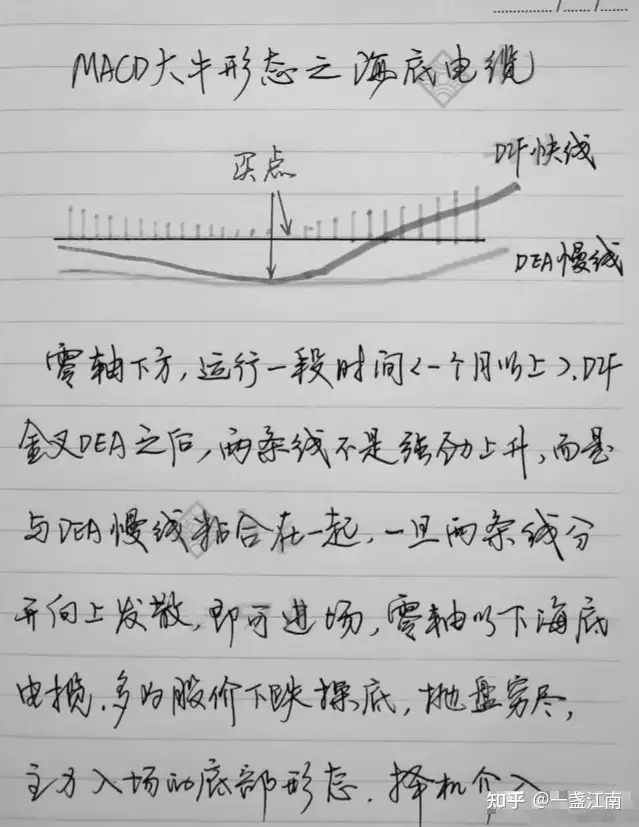 MACD大牛形态之海底电缆
买点
DIF快线
DEA慢线
零轴下方,运行一段时间<一个月以上>.DIF
金叉DEA之后,两条线不是强劲上升,而是
与DEA慢线粘合在一起,一旦两条线分
开向上发散,即可进场,零轴以下海底
电揽.多为股价下跌探底,抛盘穷尽,
主力入场的底部形态.择机介入
知乎 @一盏江南